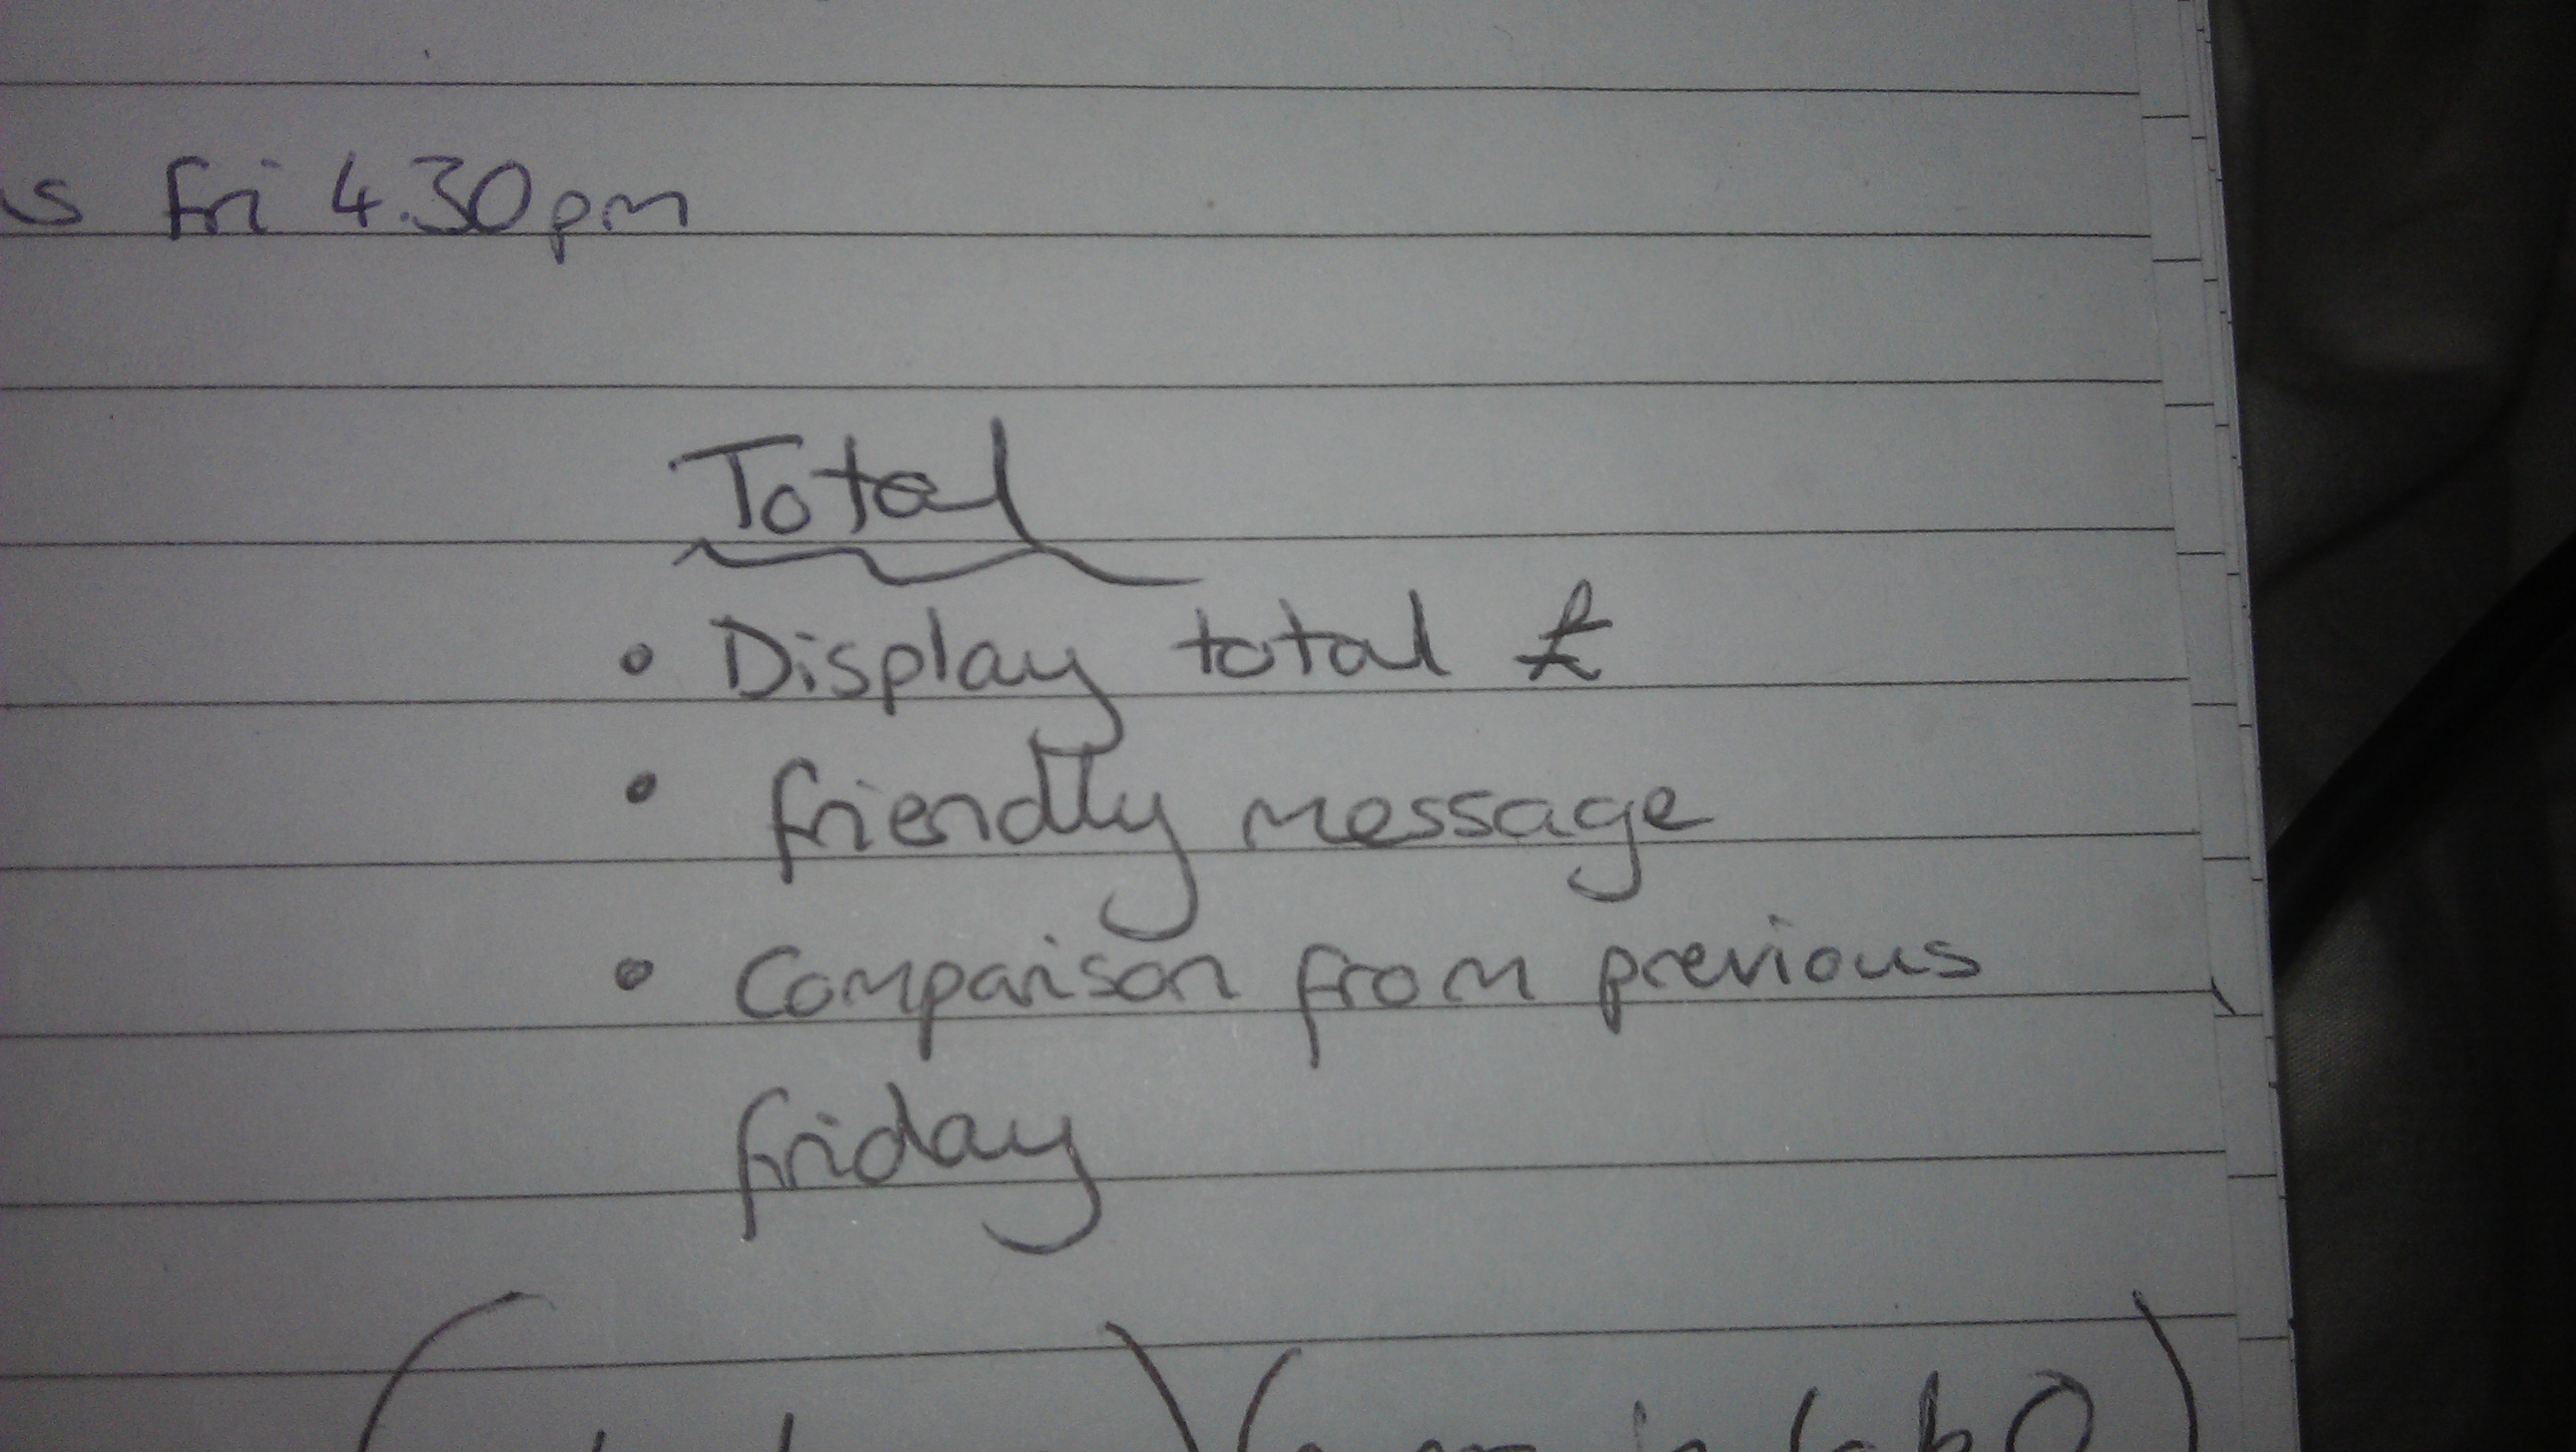 s Fri 4.30pm
Total
• Display total £
• friendly message
• Comparison from previous
friday